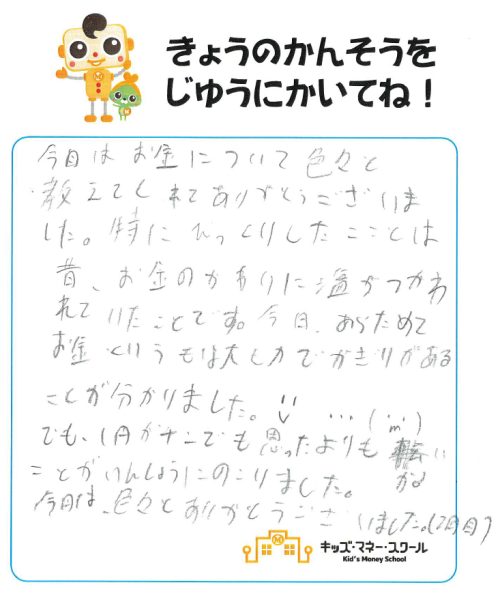 きょうのかんそうを
じゆうにかいてね！
今日は お金について 色々と
教えてくれてありがとうございま
した。特に びっくりしたことは
昔、お金のかわりに塩がつかわ
れて いたことです。今日、あらためて
お金というものは大切でかぎりがある
ことが分かりました。
でも、1円がナンでも思ったよりも
ことがいんしょうにのこりました。
今日は、色々とありがとうござ いました。(2回目)
キッズ・マネー・スクール
Kid's Money School